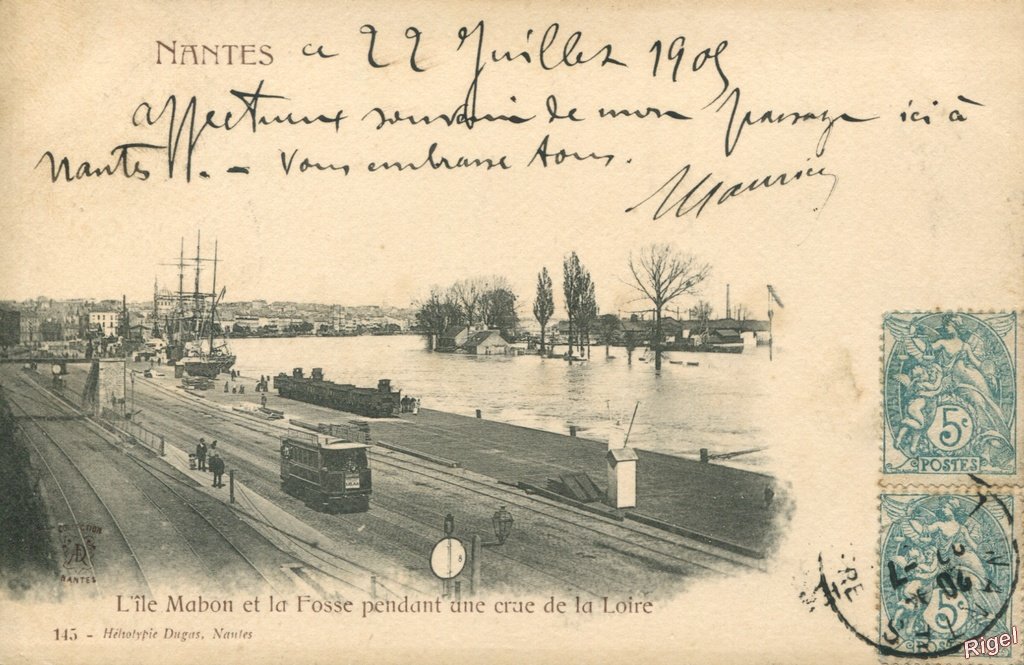 NANTES ce 22 Juillet 1905
affectueux souvenir de mon passage ici à
Nantes. - Vous embrasse tous.
Maurice
5c
POSTES
8
COLLECTION
NANTES
5c
NANTES
L'île Mabon et la Fosse pendant une crue de la Loire
145 - Héliotypie Dugas, Nantes
Rigel